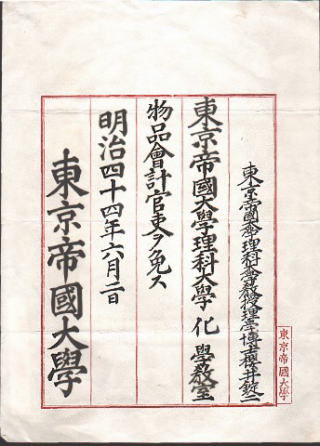 東京帝國大學理科大學教授理學博士櫻井錠二
東京帝國大學理科大學化學教室
物品會計官吏ヲ免ス
明治四十四年六月二日
東京帝國大學
東京帝國大學